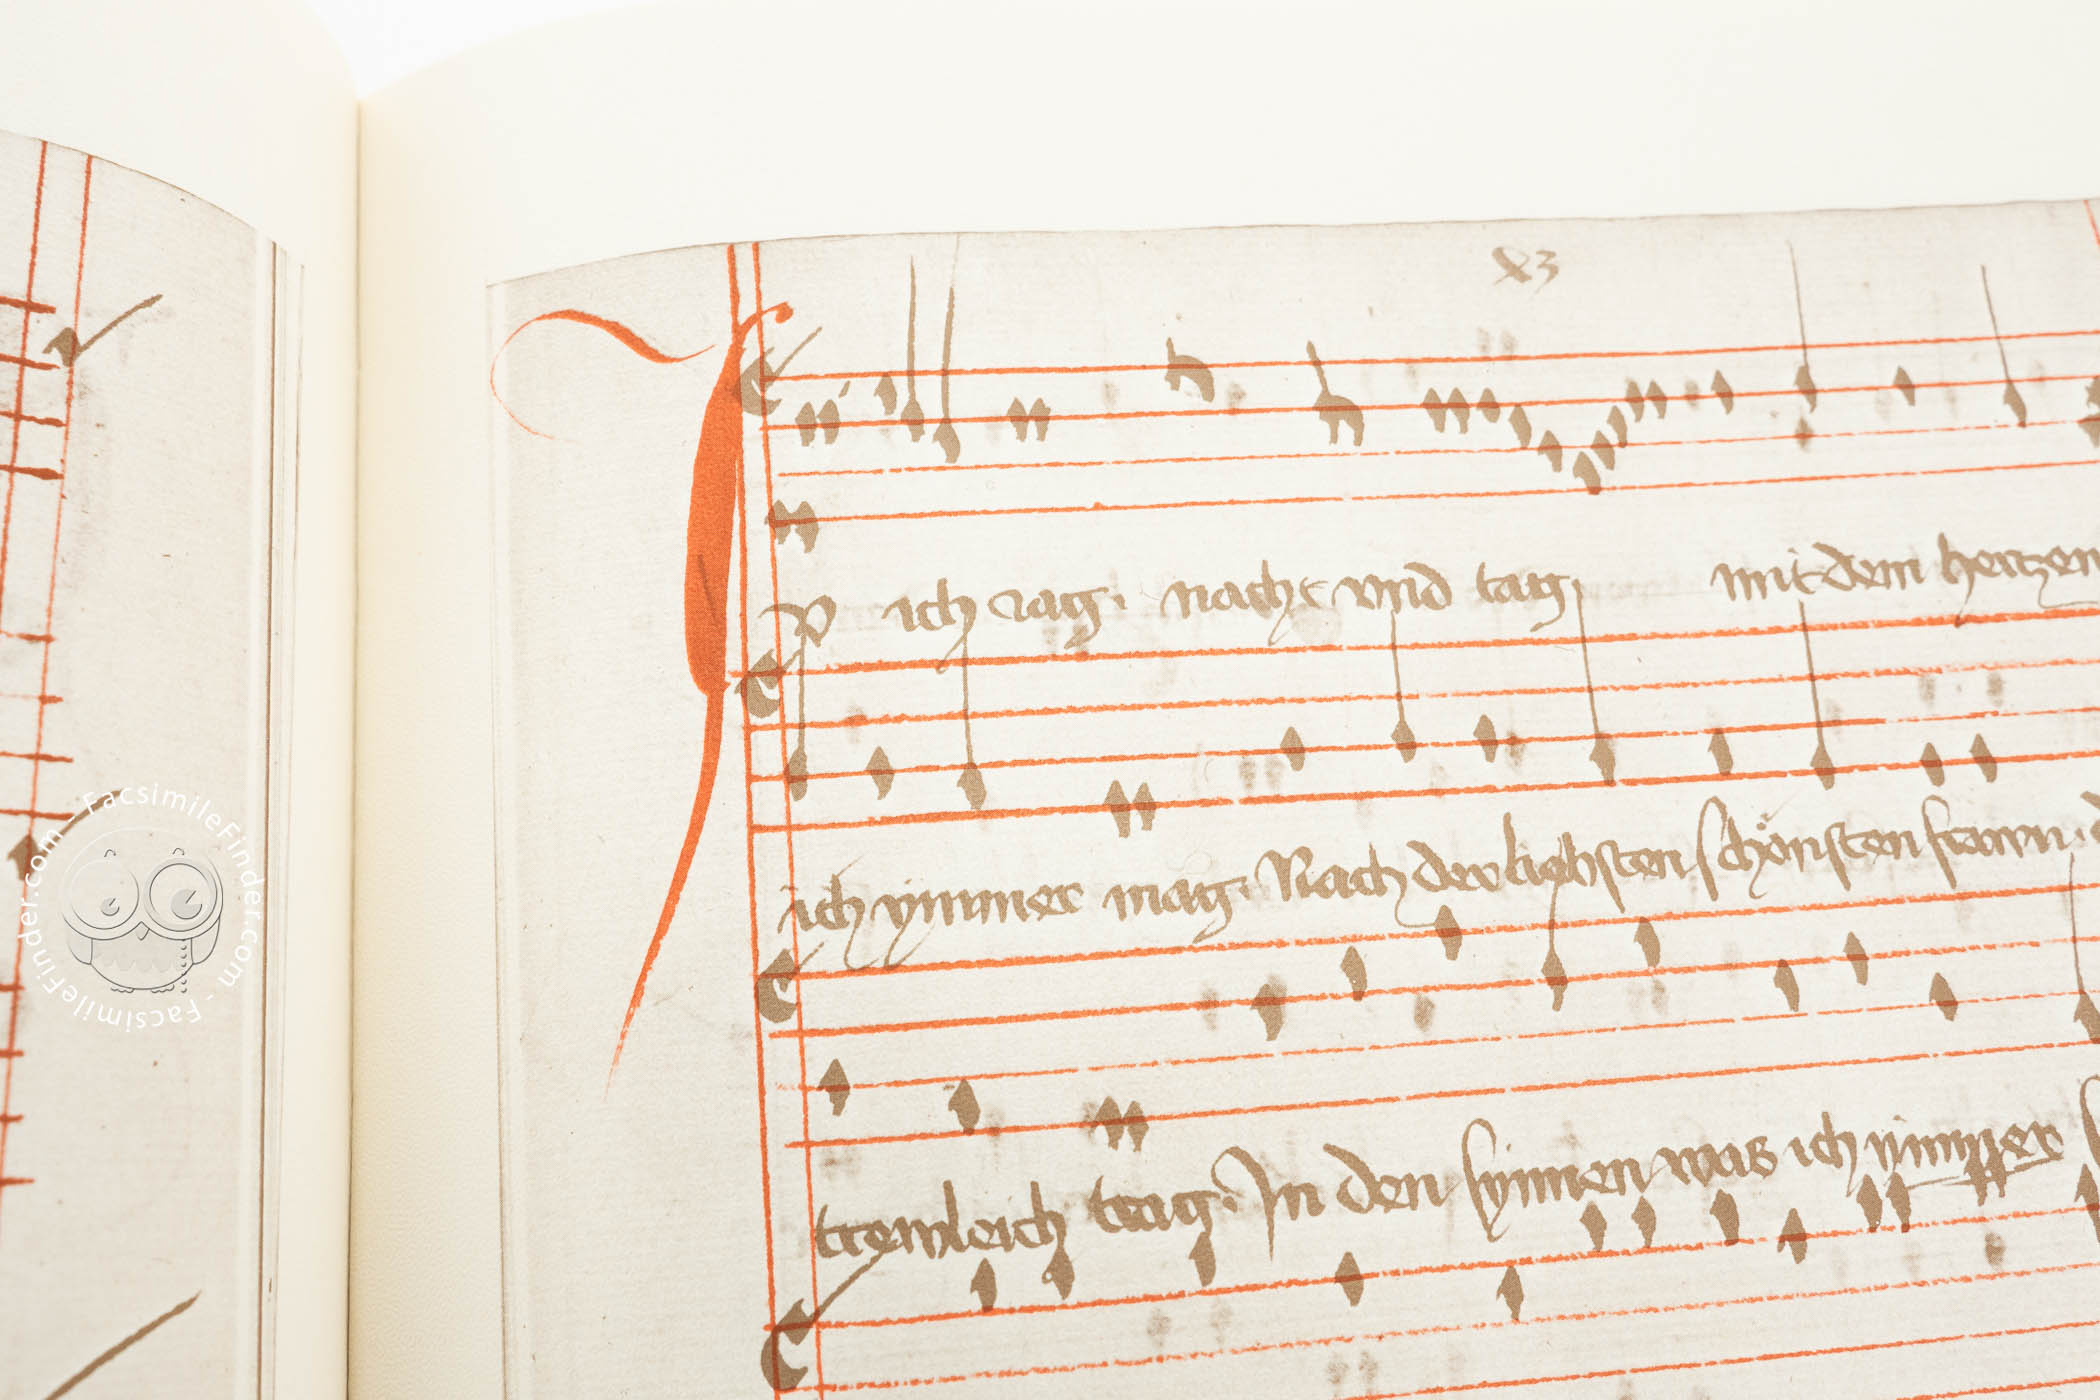 x3
Ip ich iag. nacht vnd tag. mit dem hertzen
ich ymmer mag. Nach der liebsten schönsten frawn.
trewleich trag. In den synnen was ich ymmer
FacsimileFinder.com - FacsimileFinder.com -